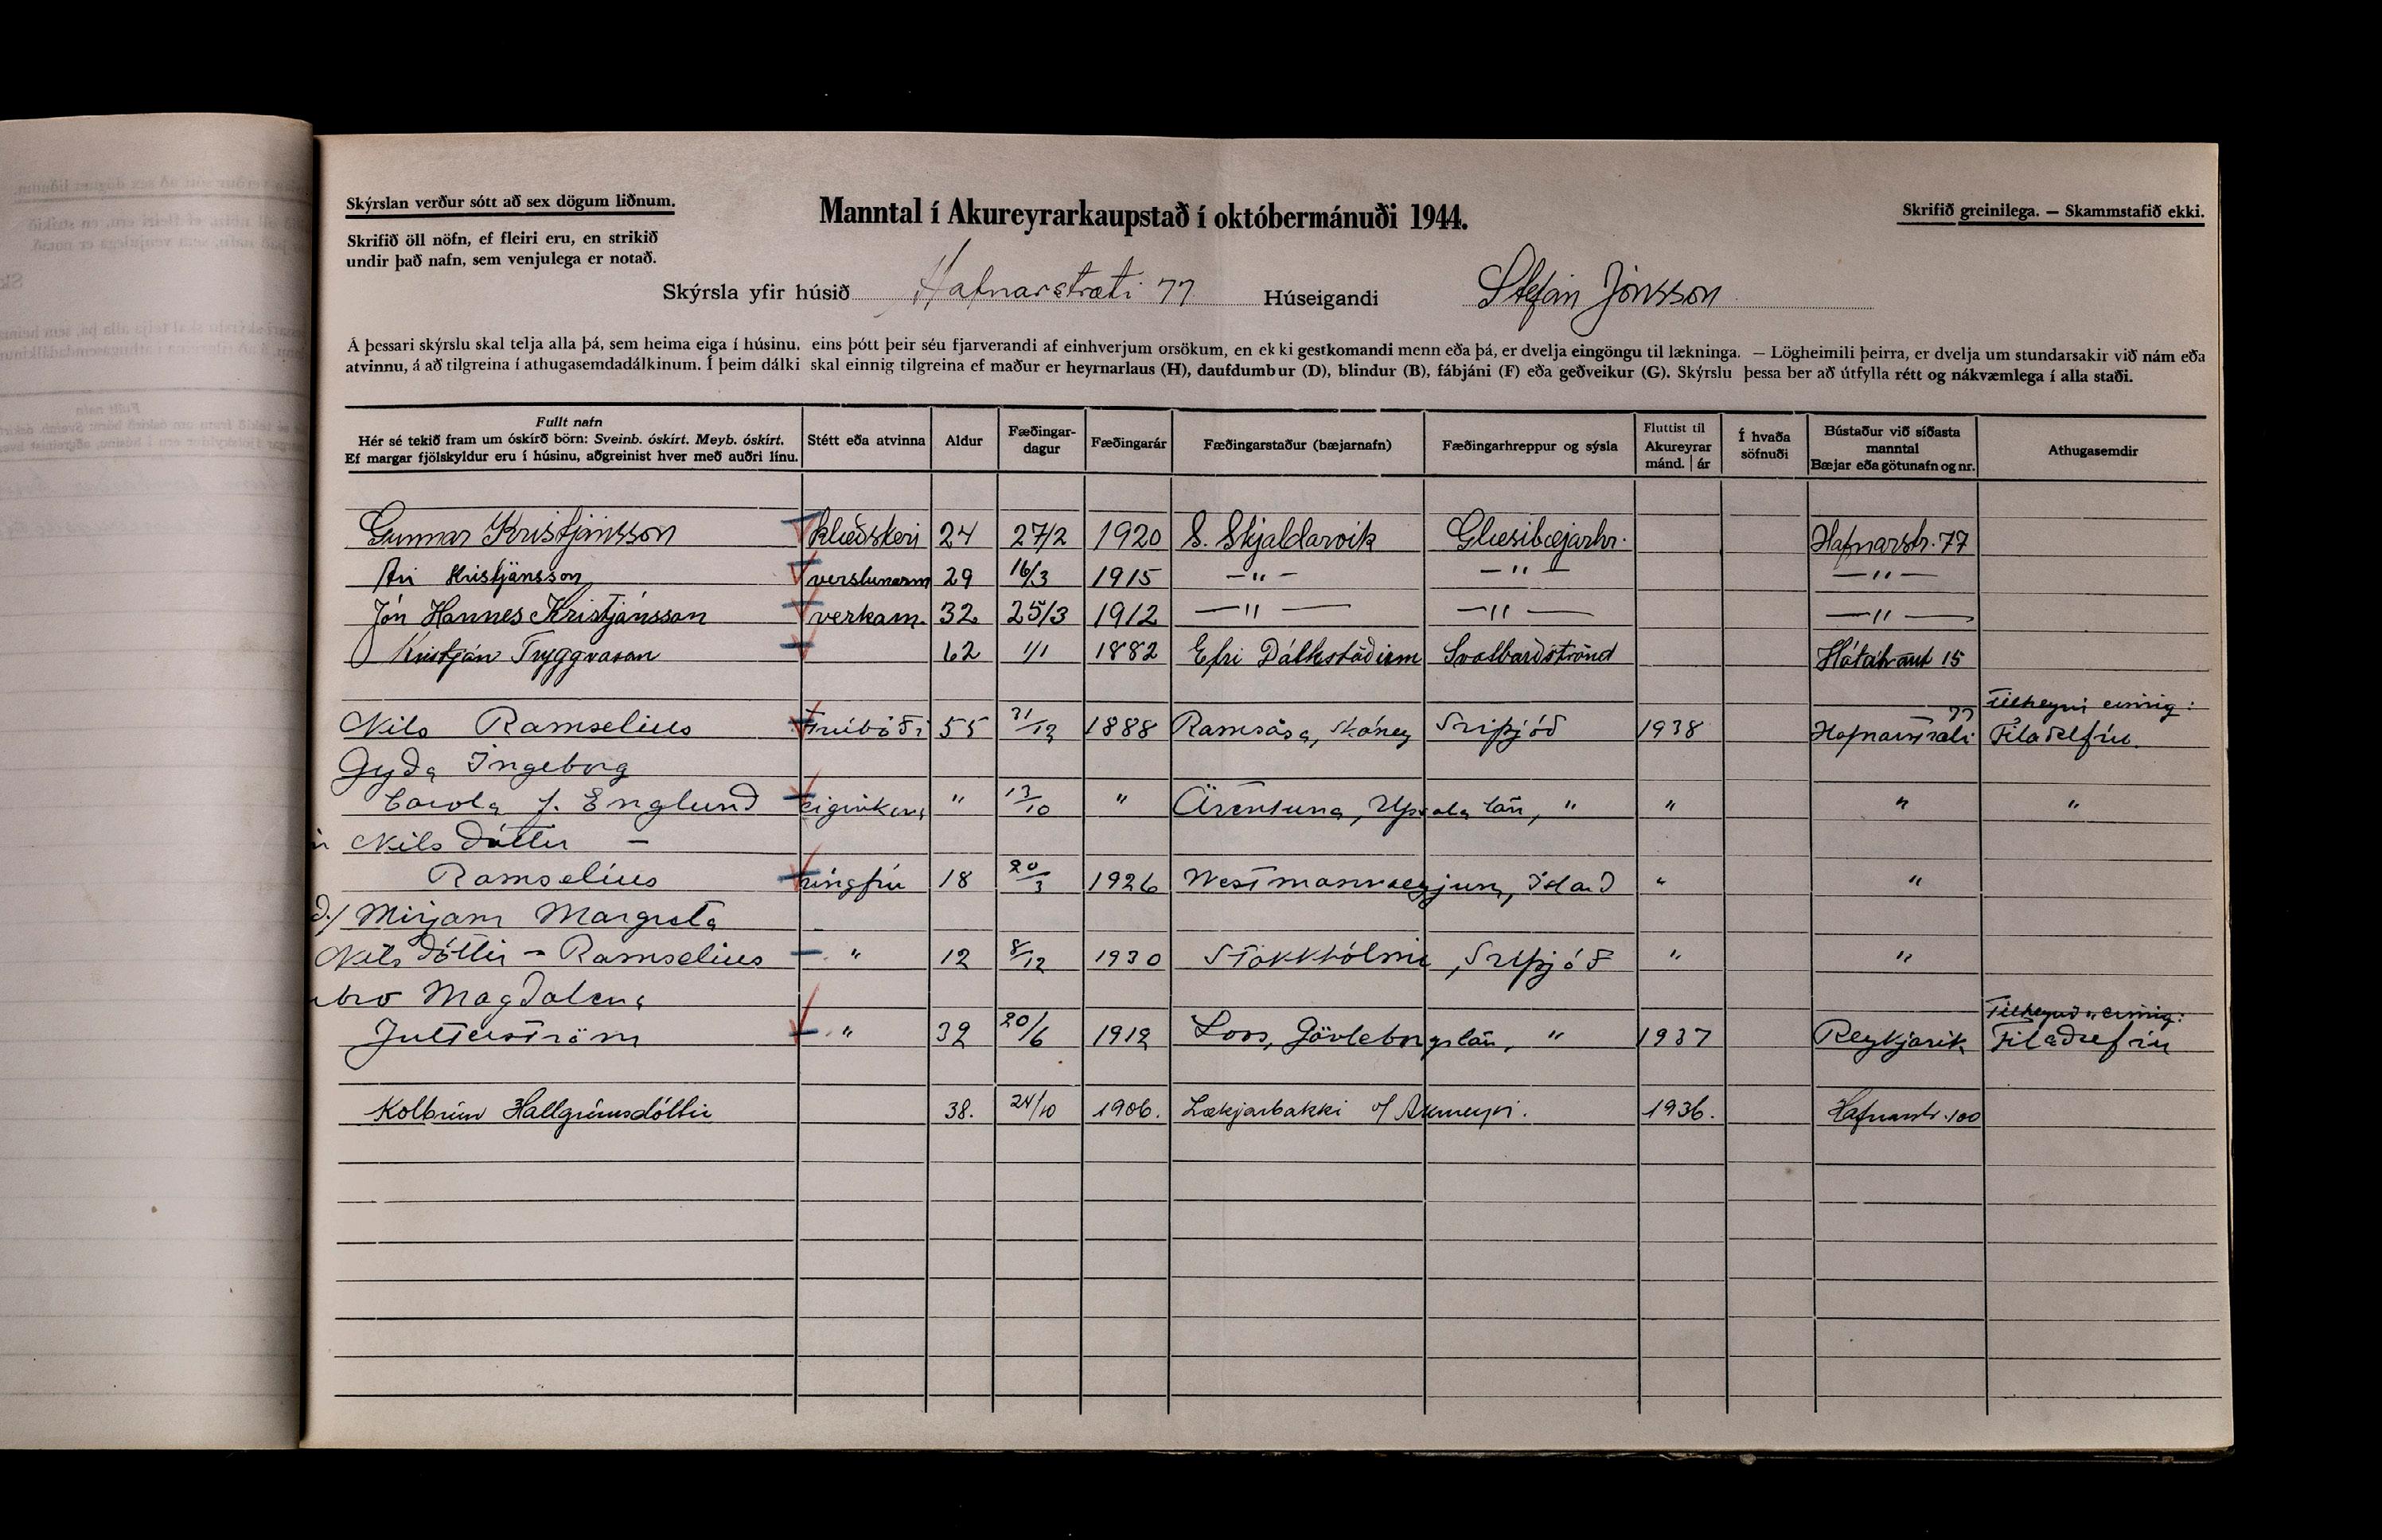 Skýrslan verður sótt að sex dögum liðnum.
Skrifið öll nöfn, ef fleiri eru, en strikið
undir það nafn, sem venjulega er notað.
Manntal í Akureyrarkaupstað í októbermánuði 1944.
Skrifið greinilega. — Skammstafið ekki.
Skýrsla yfir húsið Hafnarstræti 77 Húseigandi Stefán Jónsson
Á þessari skýrslu skal telja alla þá, sem heima eiga í húsinu, eins þótt þeir séu fjarverandi af einhverjum orsökum, en ekki gestkomandi menn eða þá, er dvelja eingöngu til lækninga. — Lögheimili þeirra, er dvelja um stundarsakir við nám eða
atvinnu, á að tilgreina í athugasemdadálkinum. Í þeim dálki skal einnig tilgreina ef maður er heyrnarlaus (H), daufdumbur (D), blindur (B), fábjáni (F) eða geðveikur (G). Skýrslu þessa ber að útfylla rétt og nákvæmlega í alla staði.
Fullt nafn
Hér sé tekið fram um óskírð börn: Sveinb. óskírt. Meyb. óskírt.
Ef margar fjölskyldur eru í húsinu, aðgreinist hver með auðri línu.
Stétt eða atvinna
Aldur
Fæðingar-
dagur
Fæðingarár
Fæðingarstaður (bæjarnafn)
Fæðingarhreppur og sýsla
Fluttist til
Akureyrar
mánd. | ár
Í hvaða
söfnuði
Bústaður við síðasta
manntal
Bæjar eða götunafn og nr.
Athugasemdir
Gunnar Kristjánsson klæðskeri 24 27/2 1920 S. Skjaldarvík Glæsibæjarhr. Hafnarstr. 77
Ari Kristjánsson verslunarm 29 16/3 1915 —"— —"— —"—
Jón Hannes Kristjánsson verkam. 32 25/3 1912 —"— —"— —"—
Kristján Tryggvason 62 1/1 1882 Efri Dálkstöðum Svalbarðströnd 15
Tilheyri einnig:
Nils Ramselius trúboði 55 31/12 1888 Ramsåsa, Skåney Svíþjóð 1938 Hafnarstræti 77 Filadelfíu.
Gyda Ingeborg
Carola f. Englund eiginkona " 13/10 " Ärentuna, Upsala län, " " " "
Nils dóttir —
Ramselius ungfrú 18 20/3 1926 Westmannaeyjum, Ísland " "
Mirjam Margreta
Nilsdóttir - Ramselius " 12 8/12 1930 Stokkhólmi, Svíþjóð " "
Magdalena
Tilheyrir einnig:
Jutterström " 32 20/6 1912 Loos, Gävleborgslän, " 1937 Reykjavík Filadelfíu
Kolbrún Hallgrímsdóttir 38. 24/10 1906. Lækjarbakki v/ Akureyri. 1936. Hafnarstr. 100